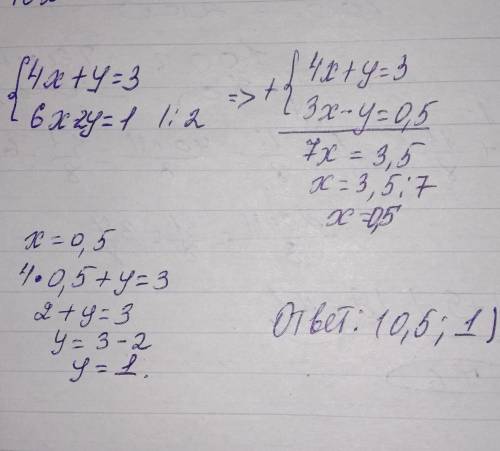 {4x+y=3
6x2y=1 |:2
=> + {4x+y=3
3x-y=0,5
7x = 3,5
x = 3,5:7
x = 0,5
x = 0,5
4•0,5+y=3
2+y=3
y = 3-2
y = 1.
Ответ: (0,5; 1)